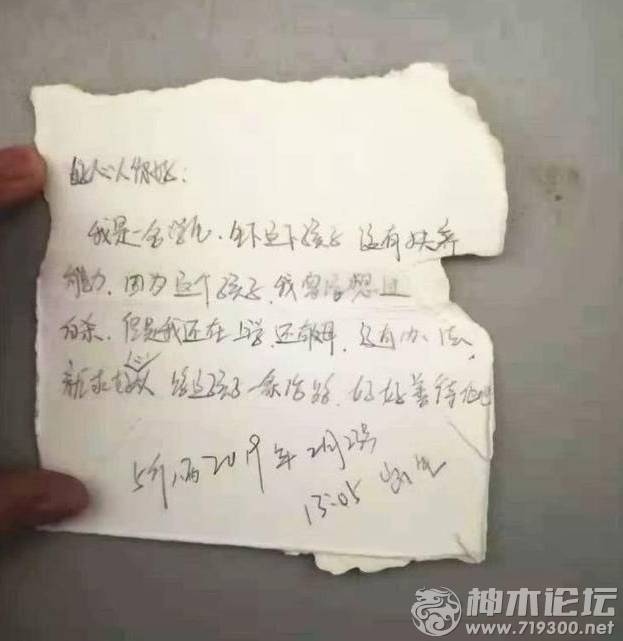 好心人你好:
我是一名学生.生下这个孩子没有扶养
能力.因为这个孩子.我曾经想过
自杀.但是我还在上学.还年.没有办法.
求好心人给这孩子一条活路.好好善待他吧
5斤8两2019年2月2号
13:05
神木论坛
www.719300.net